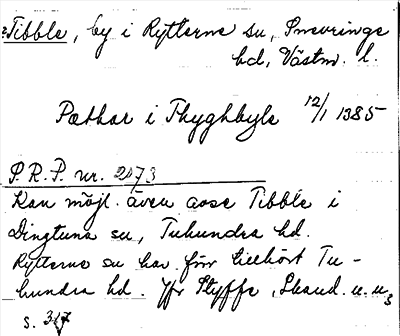 ?Tibble, by i Rytterne sn, Snevringe
hd, Västm. l.
Pæthar i Thyghbyle 12/1 1385
P.R.P. nr. 2173
Kan möjl. även avse Tibble i
Dingtuna sn, Tuhundra hd.
Rytterne sn har förr tillhört Tu-
hundra hd. Jfr Styffe, Skand. u. u3
s. 317